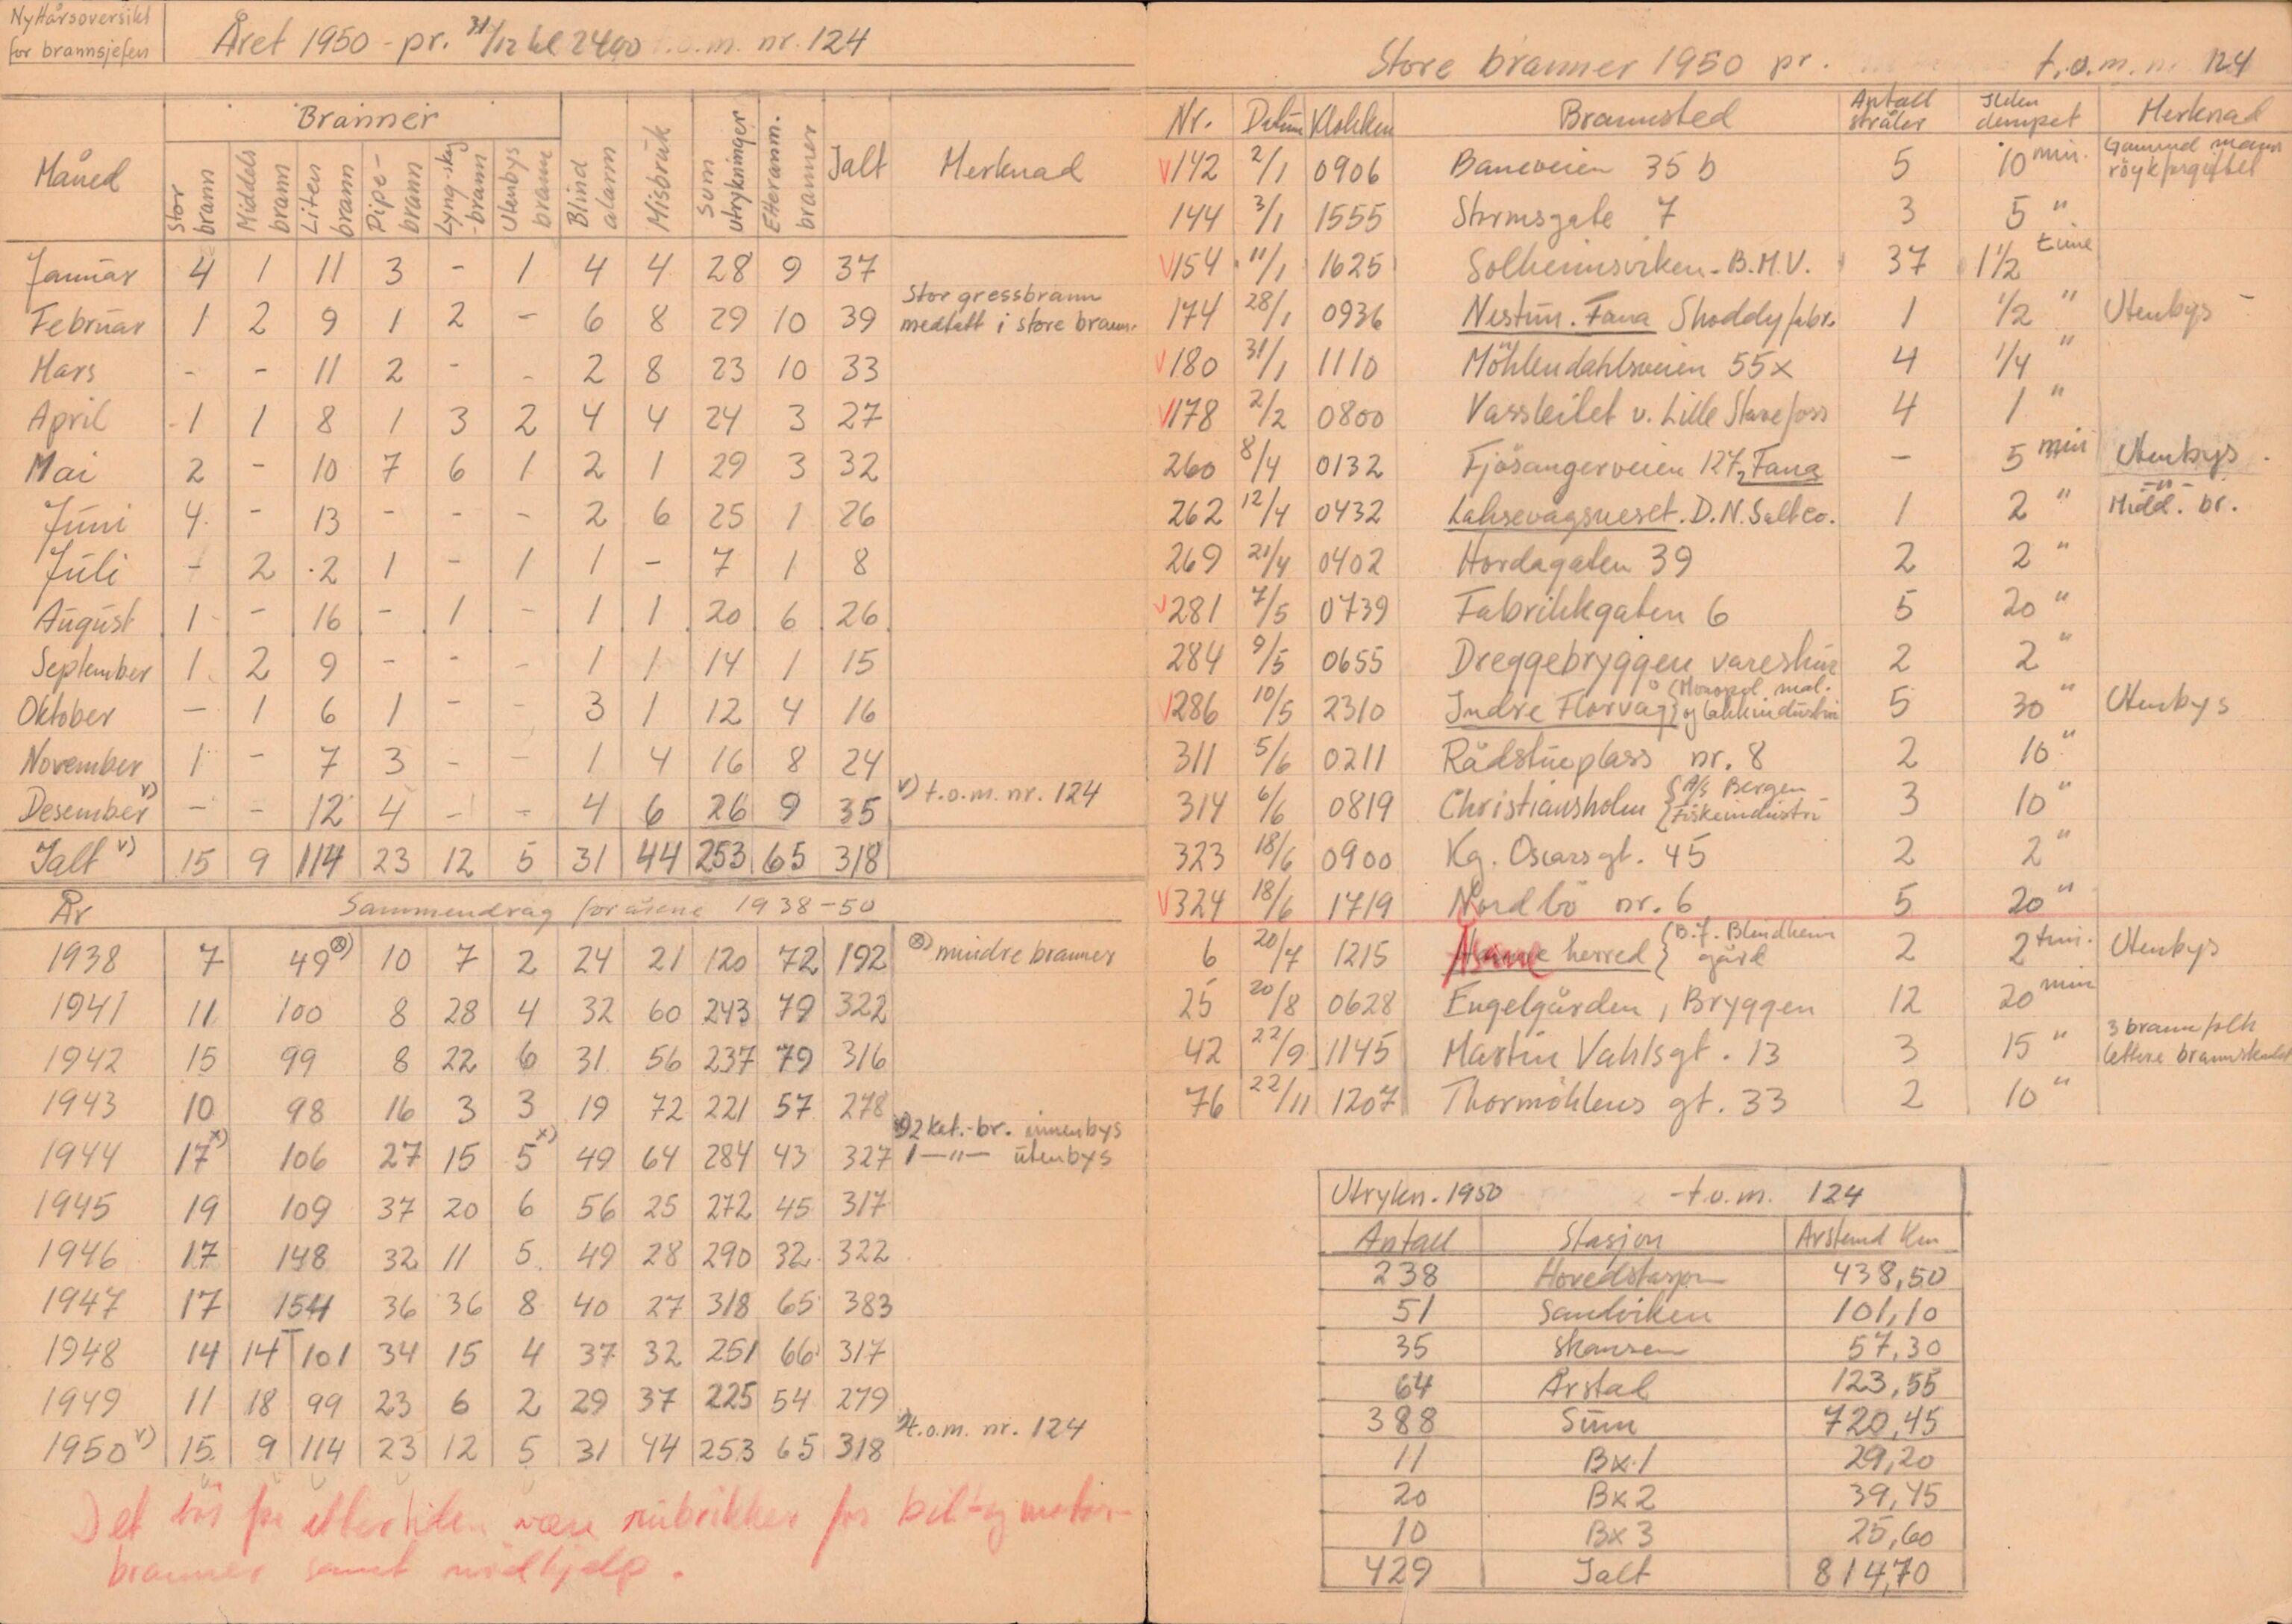 Nyttårsoversikt
for brannsjefen
Året 1950 - pr. 31/12 kl 2400 t.o.m. nr. 124
Branner
Måned
Stor brann
Middels brann
Liten brann
Pipe-brann
Lyng-skog-brann
Utenbys brann
Blind alarm
Misbruk
Sum utrykninger
Etteranm. branner
Ialt
Merknad
Januar 4 1 11 3 - 1 4 4 28 9 37
Februar 1 2 9 1 2 - 6 8 29 10 39 Stor gressbrann
medtatt i store brann.
Mars - - 11 2 - - 2 8 23 10 33
April 1 1 8 1 3 2 4 4 24 3 27
Mai 2 - 10 7 6 1 2 1 29 3 32
Juni 4 - 13 - - - 2 6 25 1 26
Juli - 2 2 1 - 1 1 - 7 1 8
August 1 - 16 - 1 - 1 1 20 6 26
September 1 2 9 - - - 1 1 14 1 15
Oktober - 1 6 1 - - 3 1 12 4 16
November 1 - 7 3 - - 1 4 16 8 24
Desember v) - - 12 4 - - 4 6 26 9 35 v) t.o.m. nr. 124
Ialt v) 15 9 114 23 12 5 31 44 253 65 318
År Sammendrag for årene 1938-50
1938 7 49 x) 10 7 2 24 21 120 72 192 x) mindre branner
1941 11 100 8 28 4 32 60 243 79 322
1942 15 99 8 22 6 31 56 237 79 316
1943 10 98 16 3 3 19 72 221 57 278
1944 17 x) 106 27 15 5 x) 49 64 284 43 327 x) 2 kat.-br. innenbys
1 -"- utenbys
1945 19 109 37 20 6 56 25 272 45 317
1946 17 148 32 11 5 49 28 290 32 322
1947 17 154 36 36 8 40 27 318 65 383
1948 14 14 101 34 15 4 37 32 251 66 317
1949 11 18 99 23 6 2 29 37 225 54 279
1950 v) 15 9 114 23 12 5 31 44 253 65 318 v) t.o.m. nr. 124
Det bös for ettertiden være rubrikker for bil- og motor-
branner samt nödhjelp.
Store branner 1950 pr. t.o.m. n. 124
Nr. Datum Klokken Brannsted Antall stråler Ilden dempet Merknad
V 142 2/1 0906 Baneveien 35 b 5 10 min. Gammel mann
röykforgiftet
144 3/1 1555 Stormsgate 7 3 5 "
V 154 11/1 1625 Solheimsviken - B.M.V. 37 1 1/2 time
174 28/1 0936 Nestun. Fana Shoddyfabr. 1 1/2 " Utenbys -
V 180 31/1 1110 Möhlendahlsveien 55x 4 1/4 "
V 178 2/2 0800 Vassleitet v. Lille Starefoss 4 1 "
260 8/4 0132 Fjösangerveien 127, Fana - 5 min Utenbys.
262 12/4 0432 Laksevågsneset. D.N. Saltco. 1 2 " -"-
Midd. br.
269 21/4 0402 Hordagaten 39 2 2 "
V 281 7/5 0739 Fabrikkgaten 6 5 20 "
284 9/5 0655 Dreggebryggen vareskur 2 2 "
V 286 10/5 2310 Indre Florvåg { Monopol mal.
og lakkindustri 5 30 " Utenbys
311 5/6 0211 Rådstueplass nr. 8 2 10 "
314 6/6 0819 Christiansholm { A/s Bergen
Fiskeindustri 3 10 "
323 18/6 0900 Kg. Oscarsgt. 45 2 2 "
V 324 18/6 1719 Nordbö nr. 6 5 20 "
6 20/7 1215 herred } (B.F. Blindheim
gård 2 2 tim. Utenbys
25 20/8 0628 Engelgården, Bryggen 12 20 min
42 22/9 1145 Martin Vahlsgt. 13 3 15 " 3 brannfolk
lettere brannskadet
76 22/11 1207 Thormöhlens gt. 33 2 10 "
Utrykn. 1950 - t.o.m. 124
Antall Stasjon Avstand Km
238 Hovedstasjon 438,50
51 Sandviken 101,10
35 Skansen 57,30
64 Årstad 123,55
388 Sum 720,45
11 Bx 1 29,20
20 Bx 2 39,45
10 Bx 3 25,60
429 Ialt 814,70